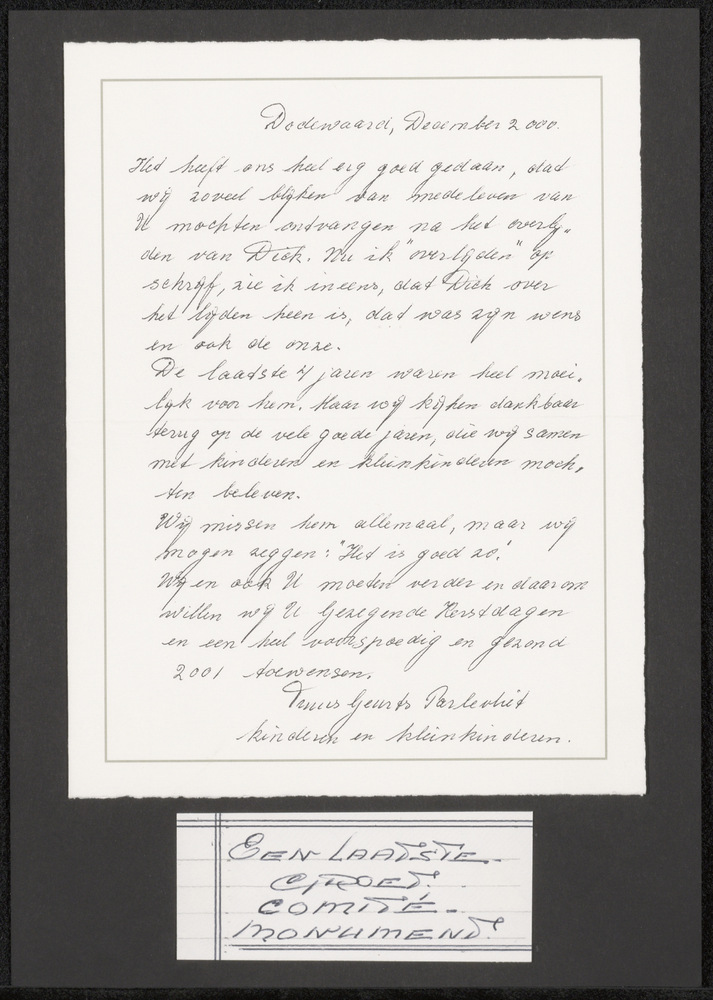 Dodewaard, December 2000.
Het heeft ons heel erg goed gedaan, dat
wij zoveel blijken van medeleven van
U mochten ontvangen na het overlij„
den van Dick. Nu ik "overlijden" op
schrijf, zie ik ineens, dat Dick over
het lijden heen is, dat was zijn wens
en ook de onze.
De laatste 4 jaren waren heel moei„
lijk voor hem. Maar wij kijken dankbaar
terug op de vele goede jaren, die wij samen
met kinderen en kleinkinderen moch„
ten beleven.
Wij missen hem allemaal, maar wij
mogen zeggen: "Het is goed zo".
Wij en ook U moeten verder en daarom
willen wij U Gezegende Kerstdagen
en een heel voorspoedig en gezond
2001 toewensen.
Truus Geurts Parlevliet
kinderen en kleinkinderen.
EEN LAATSTE
GROET.
COMITÉ-
MONUMENT.